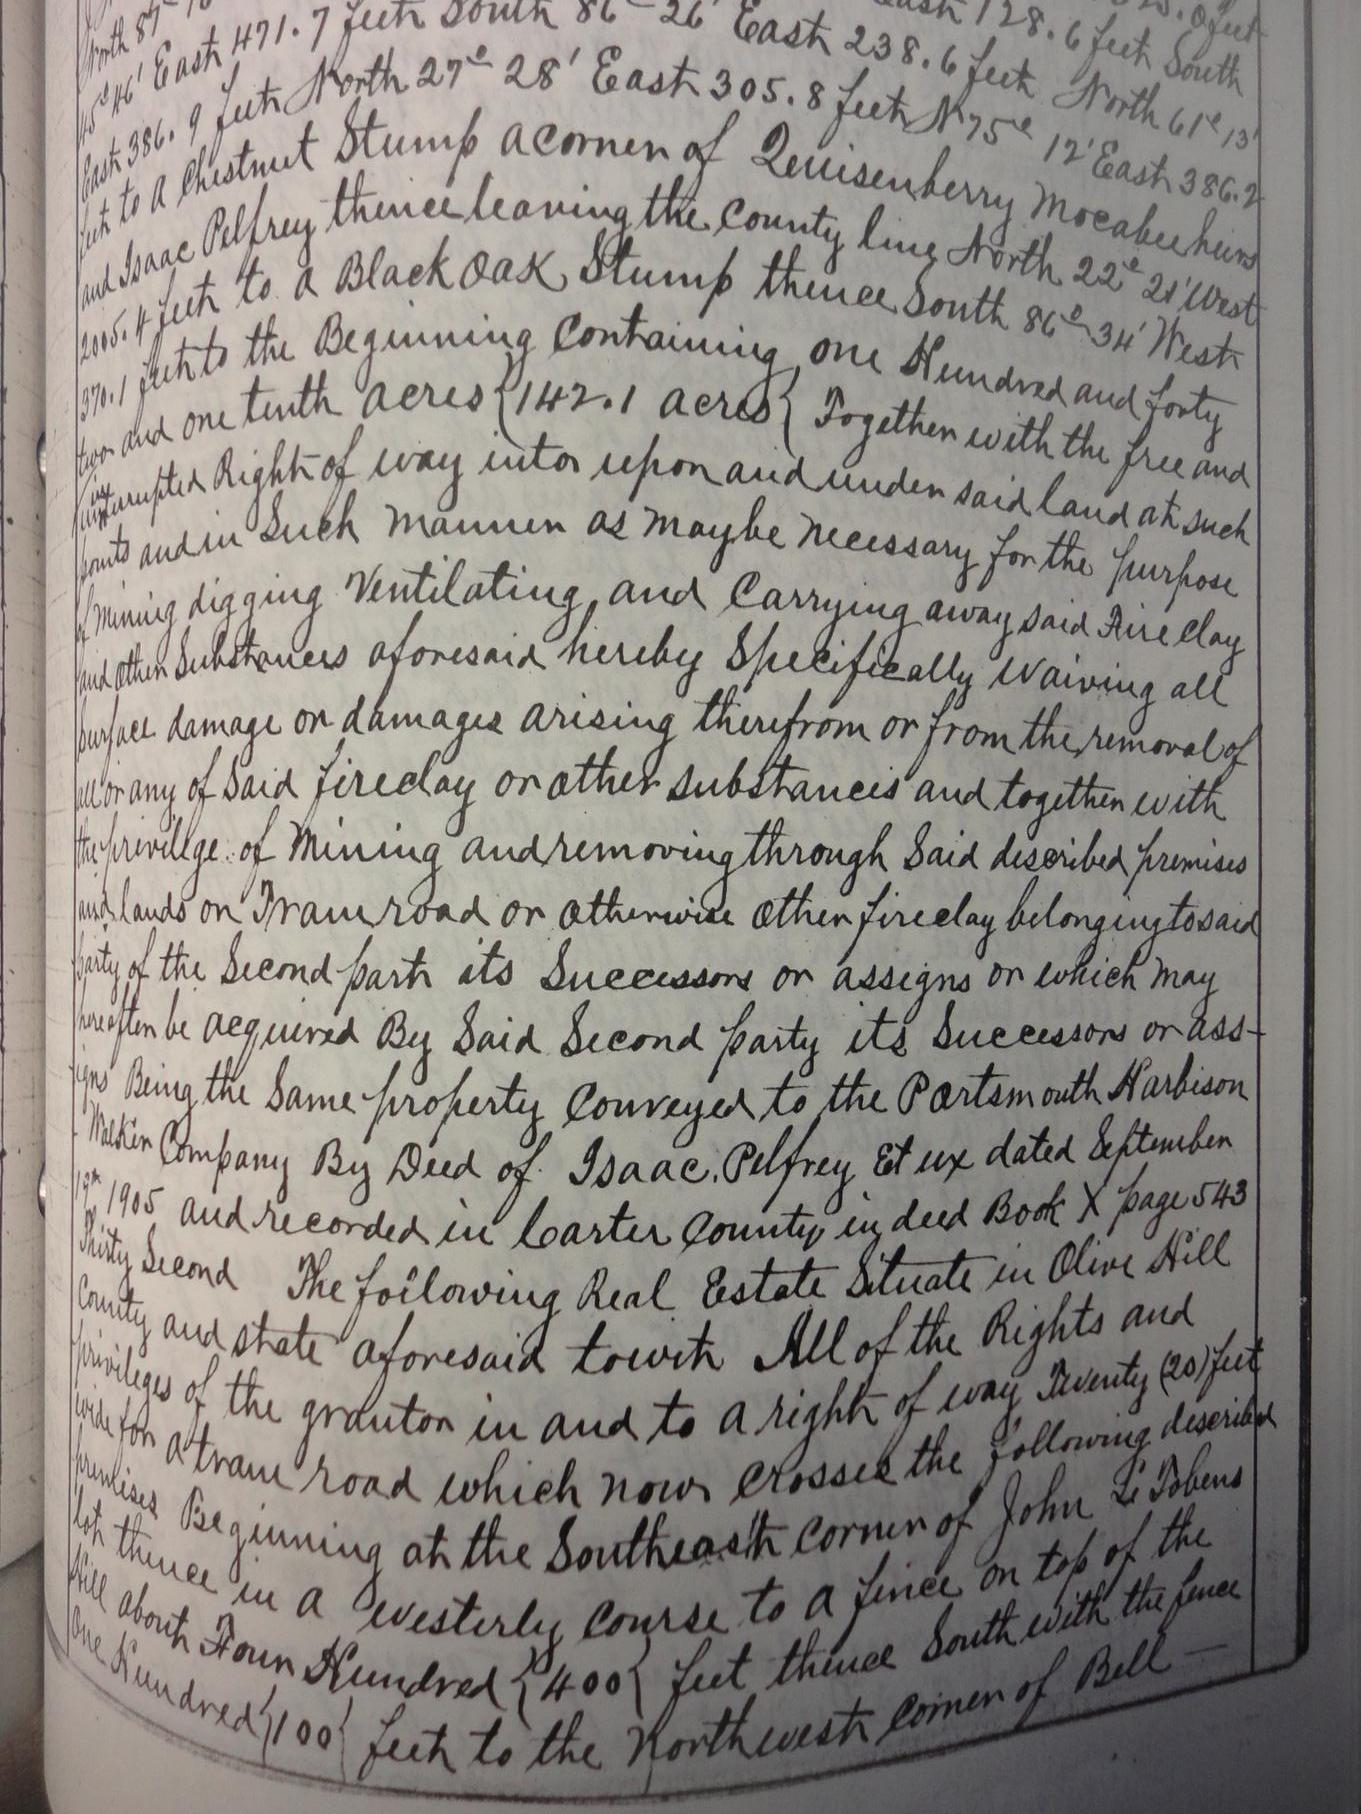 North 87° East 128.6 feet South
45° 46' East 471.7 feet South 86° 26' East 238.6 feet North 61° 13'
East 386.9 feet North 27° 28' East 305.8 feet N 75° 12' East 386.2
feet to a Chestnut Stump a corner of Quisenberry Mocabee heirs
and Isaac Pelfrey thence leaving the County line North 22° 21' West
2005.4 feet to a Black Oak Stump thence South 86° 34' West
370.1 feet to the Beginning Containing one Hundred and forty
two and one tenth acres {142.1 acres} Together with the free and
uninterrupted Right of way into upon and under said land at such
points and in Such manner as may be necessary for the purpose
of mining digging Ventilating and Carrying away said Fire Clay
and other Substances aforesaid hereby Specifically Waiving all
surface damage or damages arising therefrom or from the removal of
all or any of Said fireclay or other substances and together with
the privilege of Mining and removing through Said described premises
and lands on Tram road or otherwise other fireclay belonging to said
party of the Second part its Successors or assigns or which may
hereafter be acquired By Said Second party its Successors or ass-
igns Being the Same property Conveyed to the Portsmouth Harbison
Walker Company By Deed of Isaac Pelfrey Et ux dated September
19th 1905 and recorded in Carter County in deed Book X page 543
Thirty Second The following Real Estate Situate in Olive Hill
County and state aforesaid towit All of the Rights and
privileges of the grantor in and to a right of way Twenty (20) feet
wide for a tram road which now crosses the following described
premises Beginning at the Southeast corner of John L Tobens
lot thence in a westerly course to a fence on top of the
Hill about Four Hundred {400} feet thence South with the fence
One Hundred {100} feet to the Northwest corner of Bell —